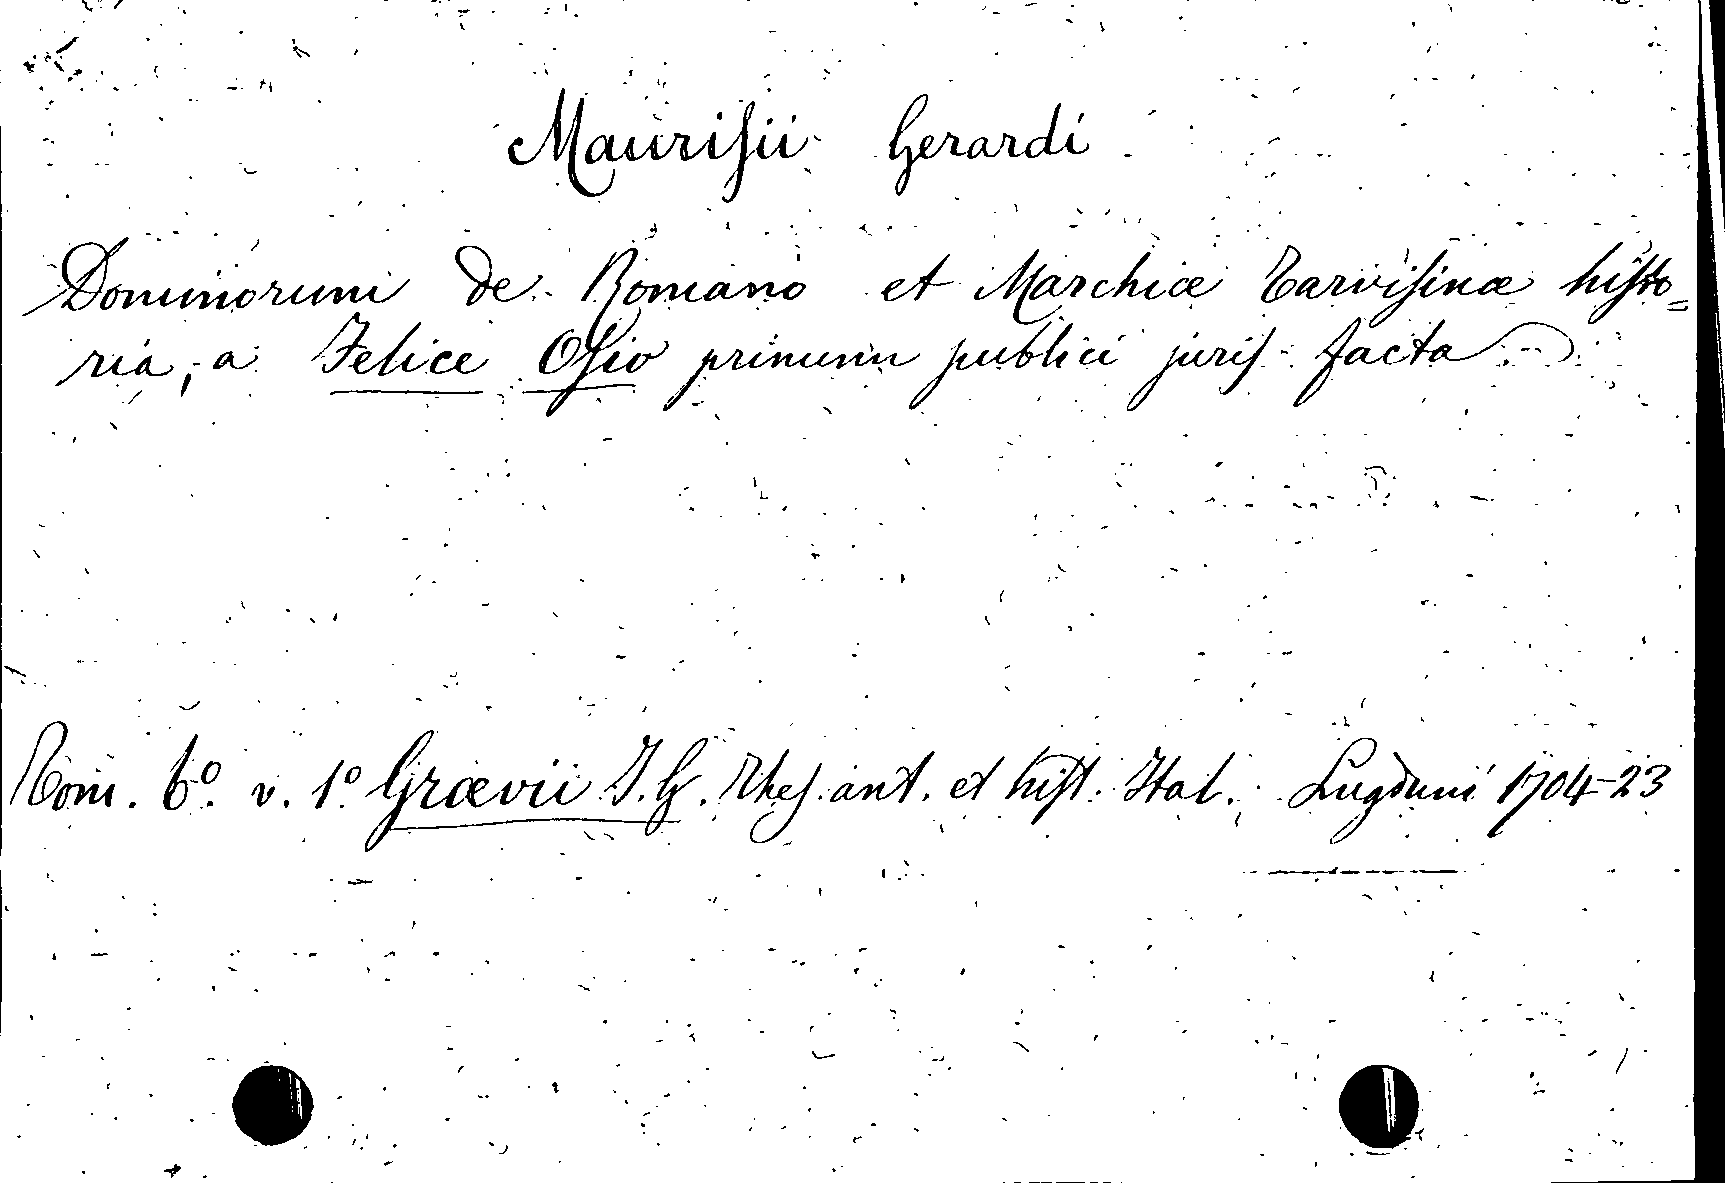 Maurisii Gerardi
Dominorum de Romano et Marchiæ Tarvisinæ histo=
ria, a Felice Osio primum publici juris facta
Tom. 6º. v. 1º Grævii J. G. Thes. ant. et hist. Ital. Lugduni 1704-23